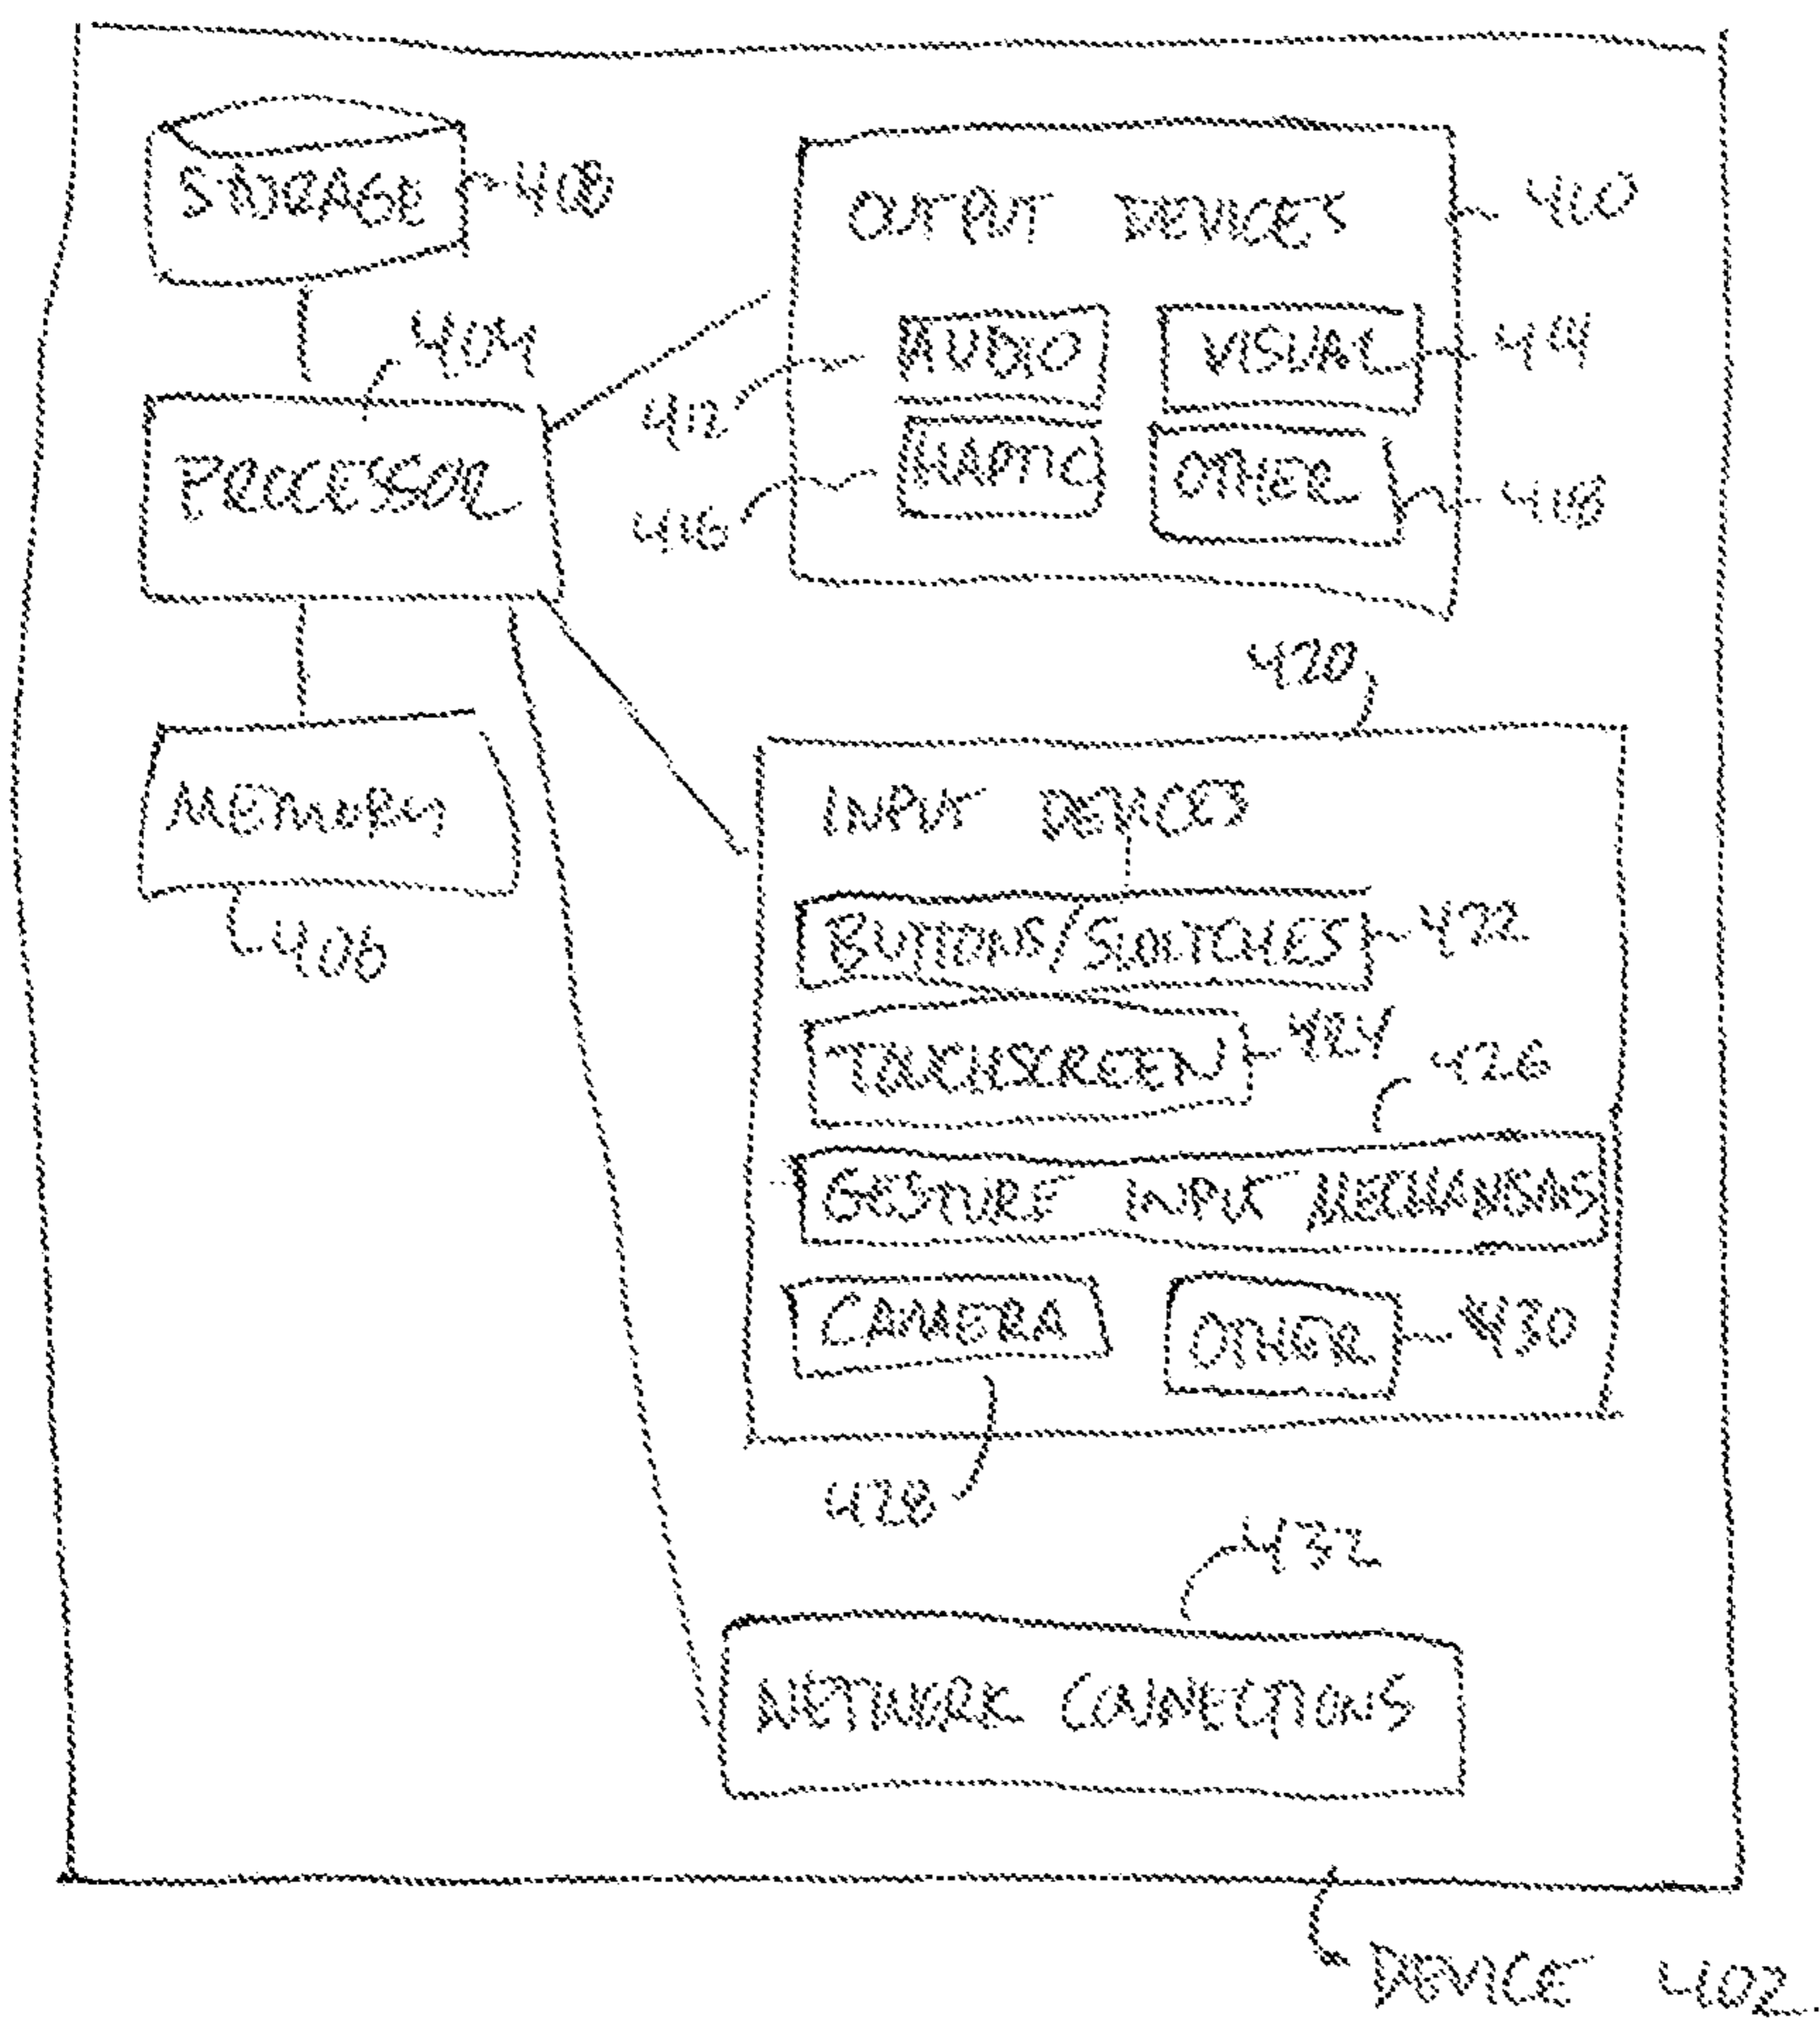 STORAGE 408
OUTPUT DEVICES 410
404
AUDIO VISUAL 414
412
PROCESSOR
HAPTIC OTHER 418
416
420
MEMORY
INPUT DEVICES
406
BUTTONS/SWITCHES 422
TOUCHSCREEN 424
426
GESTURE INPUT MECHANISMS
CAMERA OTHER 430
428
432
NETWORK CONNECTIONS
DEVICE 402